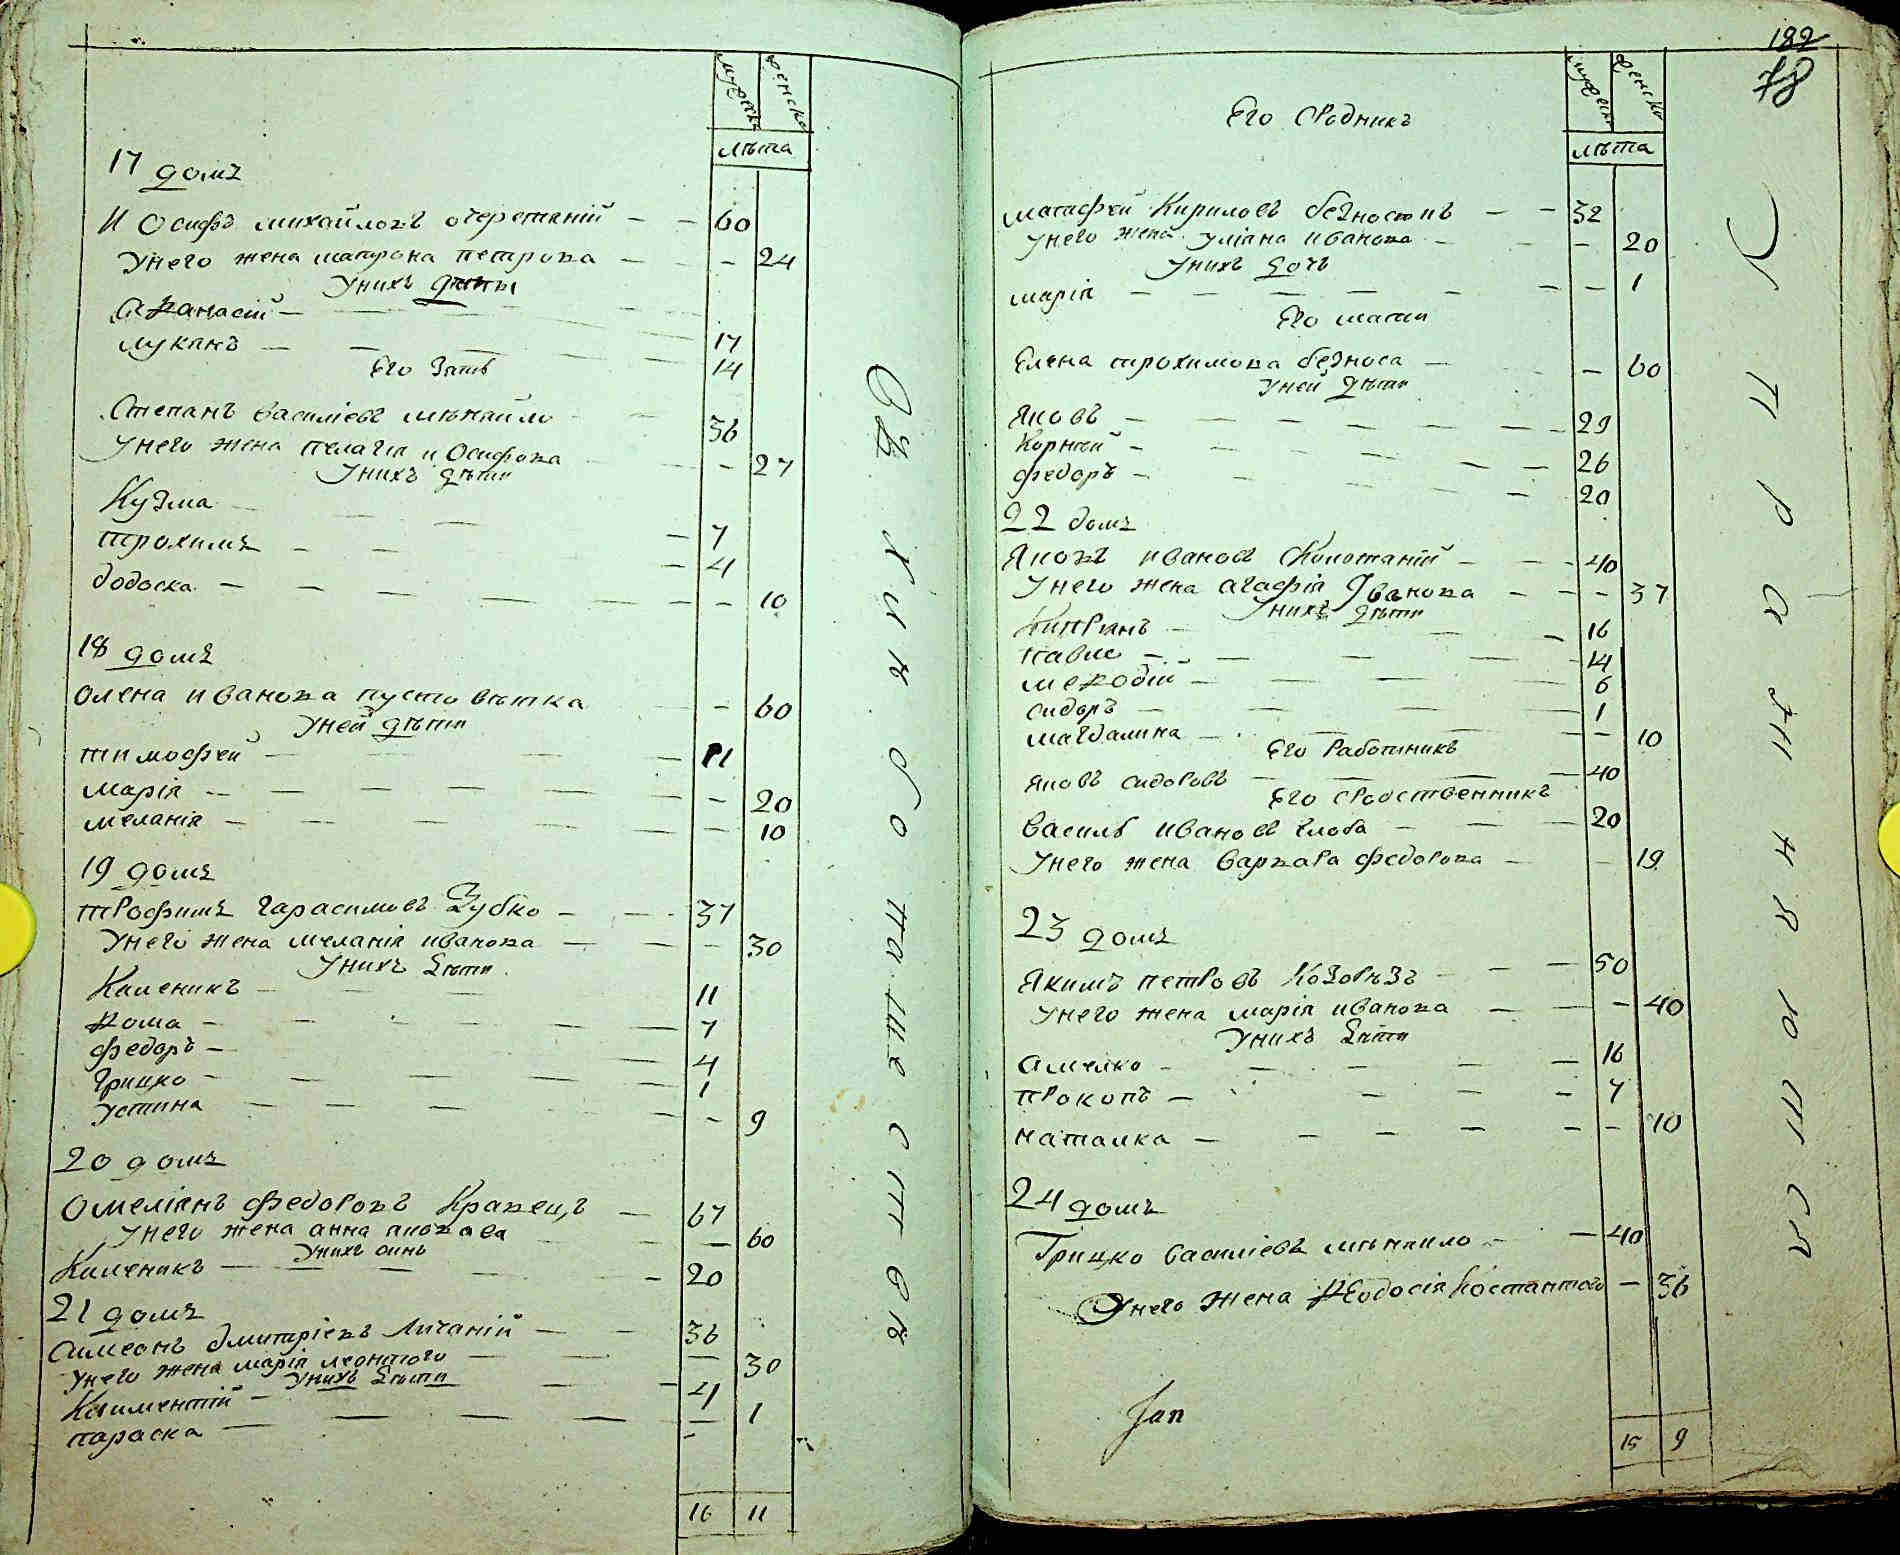 мужеска женска
лѣта
17 домъ
Иосифъ михайловъ очеретаній — — 60
Унего жена матрона петрова — — — 24
Унихъ дѣты
Аѳанасій — — — — 17
лукянъ — — — — 14
Его Зять
Степанъ василіевъ мѣхайло — — 36
Унего жена пелагія иОсифова — — — 27
Унихъ дѣти
Кузма — — — — 7
трохимъ — — — — 4
додоска — — — — — 10
18 домъ
Олена иванова пустовѣтка — 60
Уней дѣти
тимофей — — — 11
Марія — — — — — 20
меланія — — — — — 10
19 домъ
трофимъ гарасимовъ Зубко — — 37
Унего жена меланія иванова — — — 30
Унихъ дѣти
Каленикъ — — — 11
ѳома — — — — 7
федоръ — — — 4
грицко — — — — 1
устина — — — — — 9
20 домъ
Омеліянъ федоровъ Кравецъ — 67
Унего жена анна яковлева — — 60
Унихъ синъ
Каленикъ — — — — 20
21 домъ
Симеонъ дмитріевъ Личаній — — 36
Унего жена марія леонтого — — — 30
Унихъ дѣти
Климентій — — — 4
параска — — — — — 1
16 11
Въ Хиб
та
ше
ств
182
78
мужеска женско
Его Сродникъ
лѣта
матфей Кириловъ безносовъ — — 32
Унего жена уліана иванова — — — 20
Унихъ дочь
марія — — — — — — 1
Его мати
Елена трохимова безноса — — 60
Уней дѣти
Яковъ — — — — — 29
Корней — — — — — 26
федоръ — — — — — 20
22 домъ
Яковъ ивановъ — — 40
Унего жена агафія Иванова — — — 37
Унихъ дѣти
Киприянъ — — — 16
павло — — — — 14
меѳодій — — — — 6
сидоръ — — — — 1
магдалина — — — — 10
Его работникъ
яковъ сидоровъ — — — — 40
Его сродственникъ
василь ивановъ глоба — — — 20
Унего жена варвара федорова — — 19
23 домъ
Якимъ петровъ Козорѣзъ — — — 50
Унего жена марія иванова — — — 40
Унихъ дѣти
Амелко — — — — — 16
прокопъ — — — — 7
наталка — — — — — — 10
24 домъ
Грицко василіевъ мѣхайло — — 40
Унего жена ѳеодосія Костантого — 36
15 9
УПРАЖНЯЮТСЯ